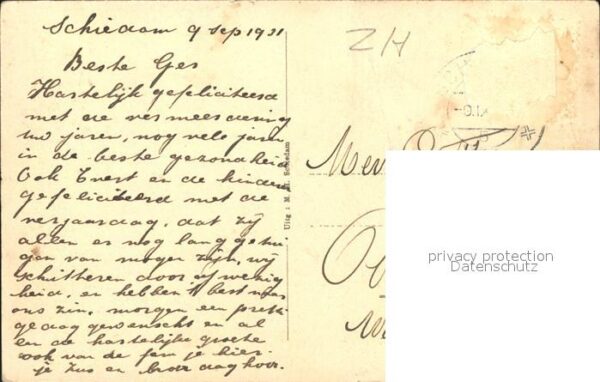 Schiedam 9 sep 1931
Beste Ges
Hartelijk gefeliciteerd
met de vermeerdering
uw jaren, nog vele jaren
in de beste gezondheid
Ook Evert en de kinders
gefeliciteerd met de
verjaardag, dat zij
allen er nog lang getui
gen van mogen zijn, wij
schitteren door afwezig
heid, en hebben 't best naar
ons zin, morgen een prett
gedaag gewenscht en al
len de hartelijke groete
ook van de fam je hier.
je zus en broer dag hoor.
Uitg : M. Schiedam
ZH
Mev
privacy protection
Datenschutz